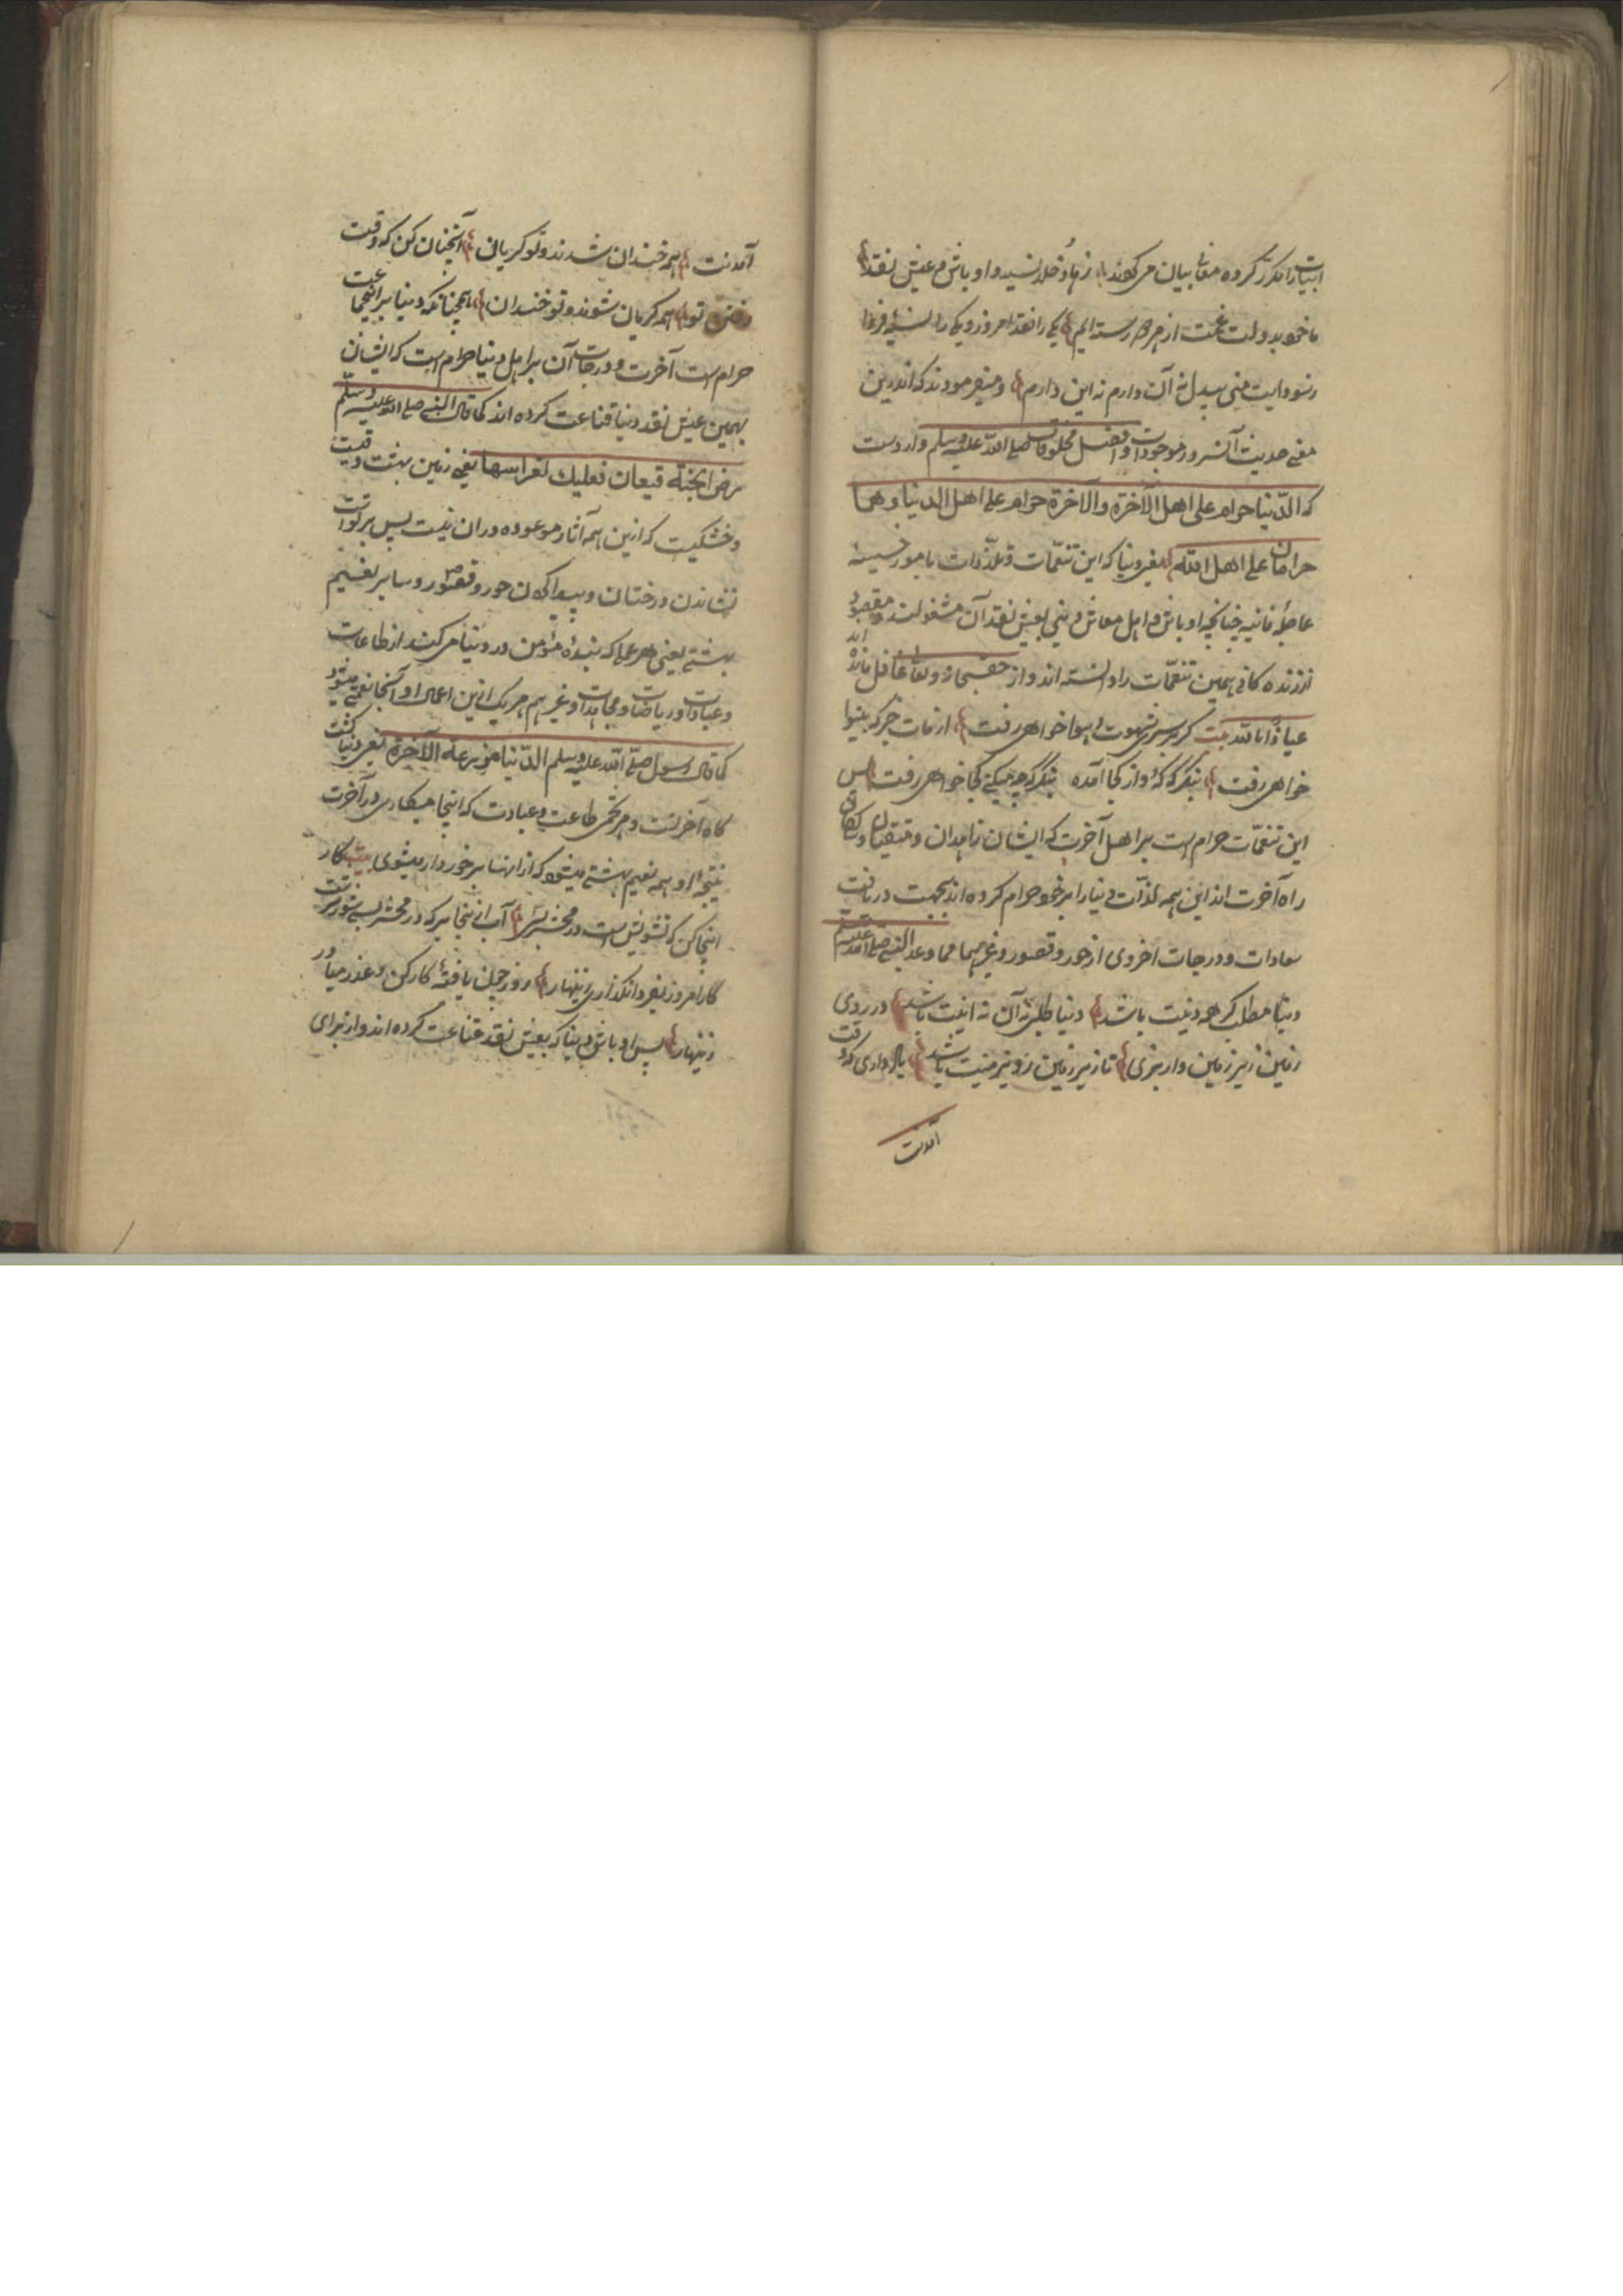 ابیات را مکرر کرده معانی بیان می کردند زهاد و خلد نسیه و اوباش و عیش نقد
ما خود بدولت غمت از هر دو رسته ایم یکی را نقد امروز و یکی را نسیه فردا
من بیدل نه آن دارم نه این دارم و میفرمودند که اندرین
معنی حدیث آنسرور موجودات و افضل مخلوقات صلی الله علیه وسلم وارد است
که الدنیا حرام علی اهل الآخرة والآخرة حرام علی اهل الدنیا وهما
حرامان علی اهل الله یعنی دنیا که این تنعمات و تلذذات بامور خسیسه
عاجلۀ فانیه چنانچه اوباش و اهل معاش دنیی بعیش نقد آن مشغولند و مقصود
زندگانی همین تنعمات را دانسته اند و از حق سبحانه وتعالی غافل مانده اند
عیاذا بالله بیت گر بر سر شهوت و هوا خواهی رفت از مات خبر که بینوا
خواهی رفت بنگر که که و از کجا آمده بنگر که چه میکنی کجا خواهی رفت پس
این تنعمات حرام است بر اهل آخرت که ایشان زاهدان و متقیان و سالکان
راه آخرت اند این همه لذات دنیا را بر خود حرام کرده اند بجهت دریافت
سعادات و درجات اخروی از حور و قصور و غیرهما مما وعد النبی صلی الله علیه وسلم
دنیا مطلب که همه دینت باشد دنیا طلبی نه آن نه اینت باشد در روی
زمین زیر زمین وار بزی تا زیر زمین روی زمینت باشد یاد داری که وقت
آمدنت
آمدنت همه خندان شدند و تو گریان آنچنان کن که وقت
رفتن تو همه گریان شوند و تو خندان همچنانکه دنیا بر
حرام است آخرت و درجات آن بر اهل دنیا حرام است که ایشان
بهمین عیش نقد دنیا قناعت کرده اند کما قال النبی صلی الله علیه وسلم
ارض الجنة قیعان فعلیك لغراسها یعنی زمین بهشت
و خشکیست که ازین همه آثار موعوده دران نیست پس بر تو است
نشاندن درختان و پیدا کردن حور و قصور و سایر نعیم
بهشتی یعنی هر عملی که بندۀ مؤمن در دنیا می کند از طاعات
و عبادات و ریاضات و مجاهدات و غیر هم هر یک ازین اعمال او آنجا نعمتی میشود
کما قال رسول صلی الله علیه وسلم الدنیا مزرعة الآخرة یعنی دنیا کشت
گاه آخرتست و هر تخمی طاعت و عبادت که اینجا میکاری در آخرت
نتیجه او همه نعیم بهشتی میشود که از انها برخوردار میشوی بیت کار
اینجا کن که تشویش است در محشر بسی آب ازینجا بر که در محشر بسی شور و شرست
کار امروز بفردا نگذاری زنهار روز چون یافتۀ کار کن و عذر میاور
زنهار پس اوباش دنیا که بعیش نقد قناعت کرده اند و از برای